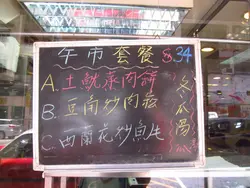 午市套餐 $34
A. 土魷菜肉餅
B. 豆角炒肉崧
C. 西蘭花炒魚片
冬瓜湯